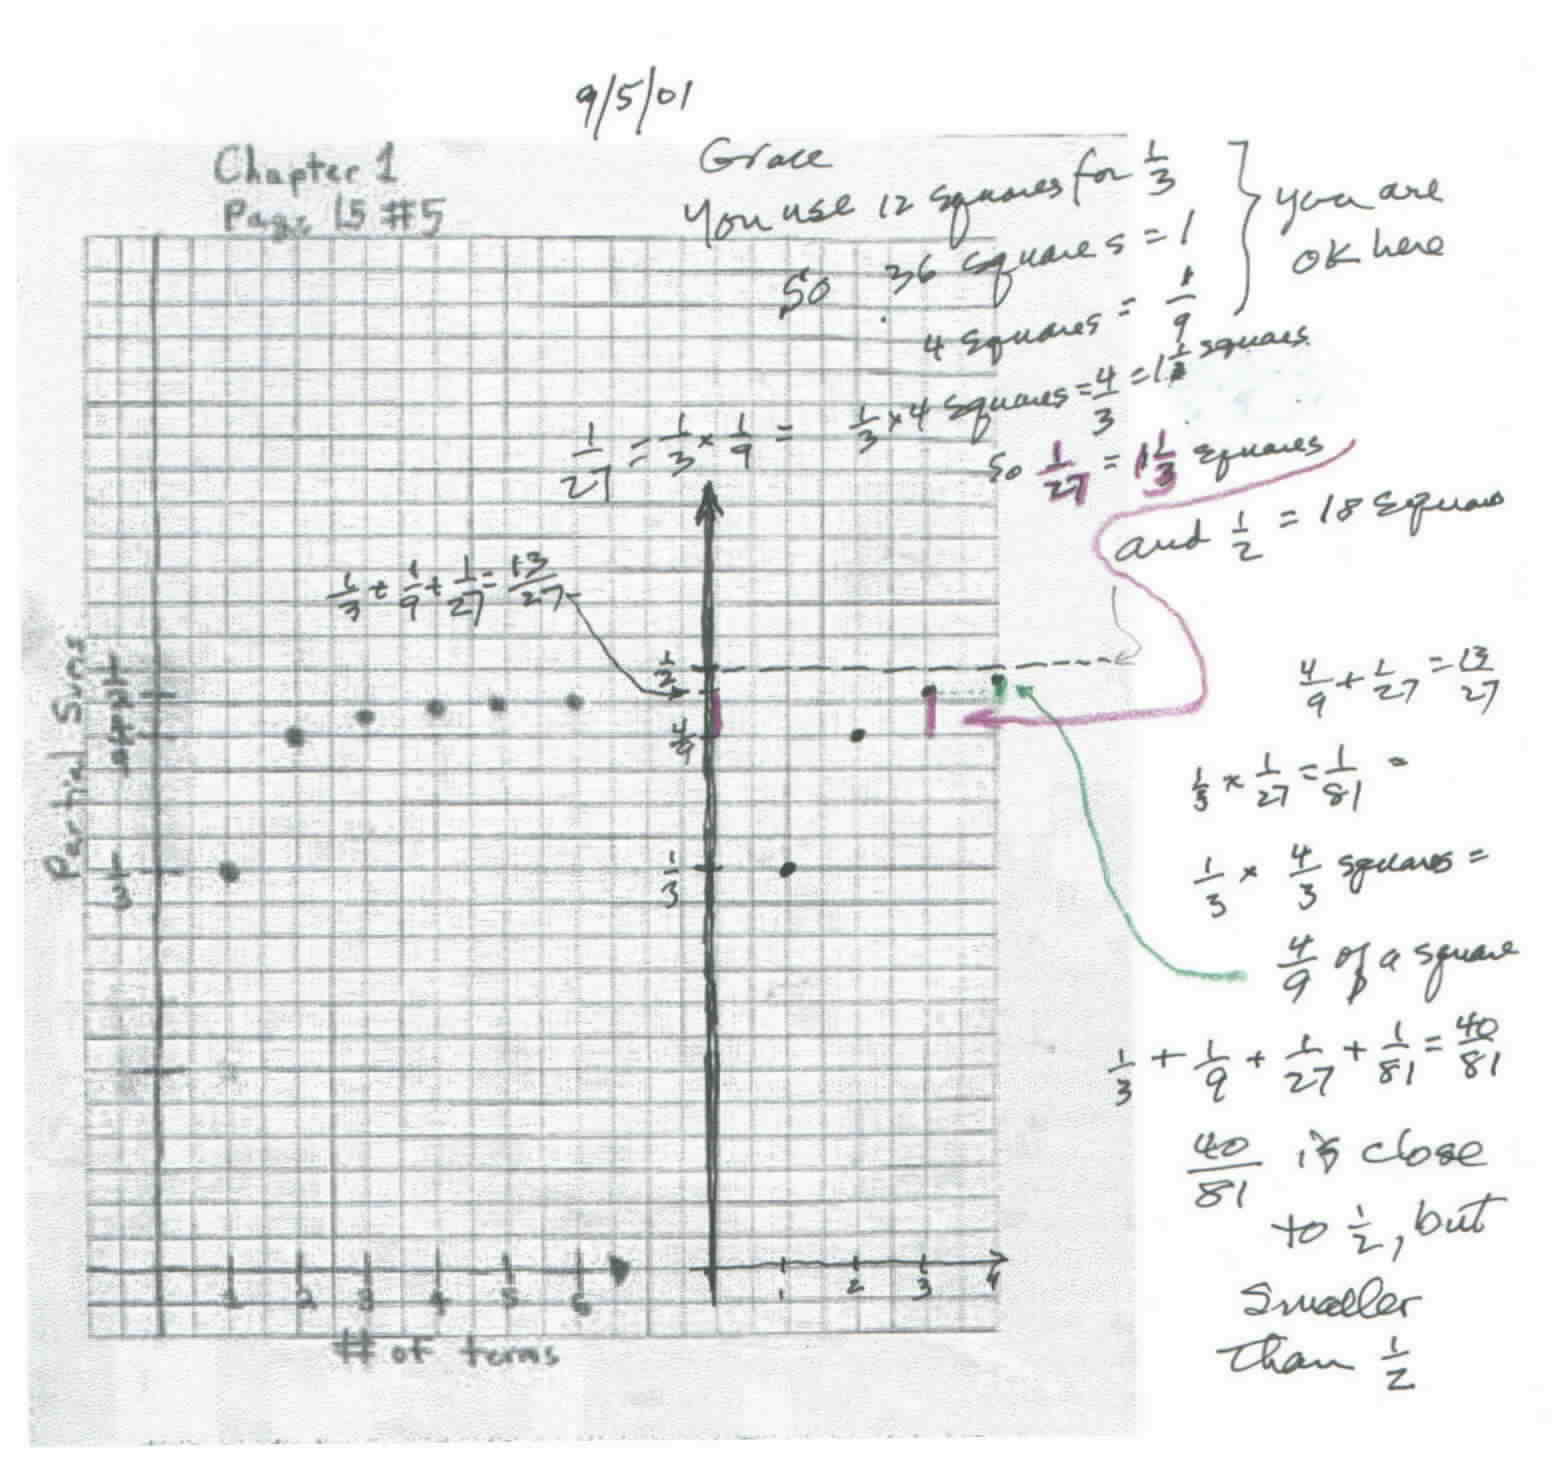 9/5/01
Chapter 1
Page 15 #5
Grace
You use 12 squares for 1/3
So 36 squares = 1
4 squares = 1/9
you are
ok here
1/27 = 1/3 × 1/9 = 1/3 × 4 squares = 4/3 = 1 1/3 squares
So 1/27 = 1 1/3 squares
and 1/2 = 18 squares
1/3 + 1/9 + 1/27 = 13/27
1/2
4/9
1/3
Partial Sums
1/3
4/9 + 1/27 = 13/27
1/3 × 1/27 = 1/81 =
1/3 × 4/3 squares =
4/9 of a square
1/3 + 1/9 + 1/27 + 1/81 = 40/81
40/81 is close
to 1/2, but
smaller
than 1/2
1 2 3 4 5 6
1 2 3 4
# of terms